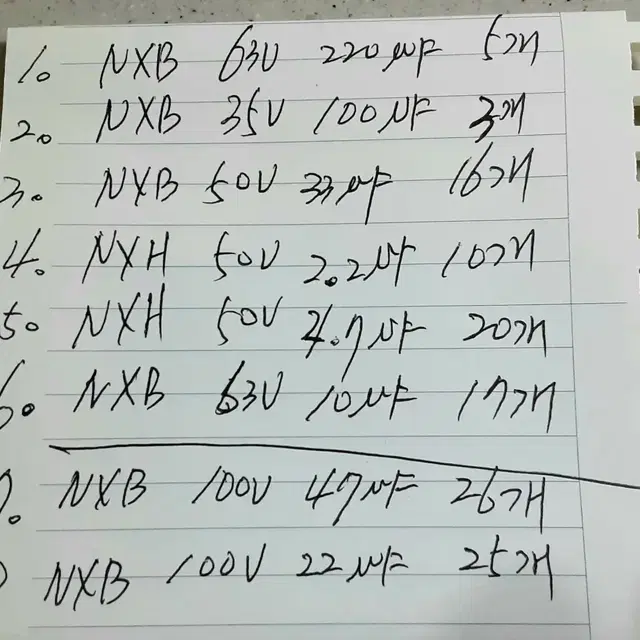 1. NXB 63V 220μF 5개
2. NXB 35V 100μF 3개
3. NXB 50V 33μF 16개
4. NXH 50V 2.2μF 10개
5. NXH 50V 4.7μF 20개
6. NXB 63V 10μF 17개
7. NXB 100V 47μF 26개
NXB 100V 22μF 25개